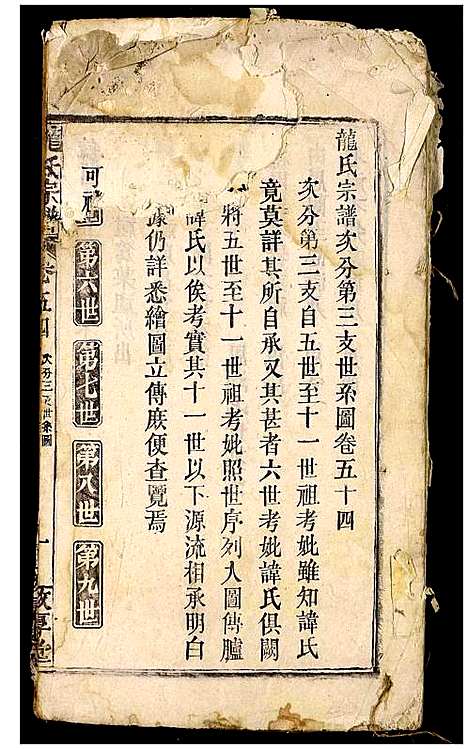 龍氏宗譜次分第三支世系圖卷五十四
次分第三支自五世至十一世祖考妣雖知諱氏
竟莫詳其所自承又其甚者六世考妣諱氏俱闕
將五世至十一世祖考妣照世序列入圖傳臚
諱氏以俟考實其十一世以下源流相承明白
仍詳悉繪圖立傳庶便查覽焉
可 第六世 第七世 第八世 第九世
龍氏宗譜 卷五四 次分三支世系圖 一 敦厚堂